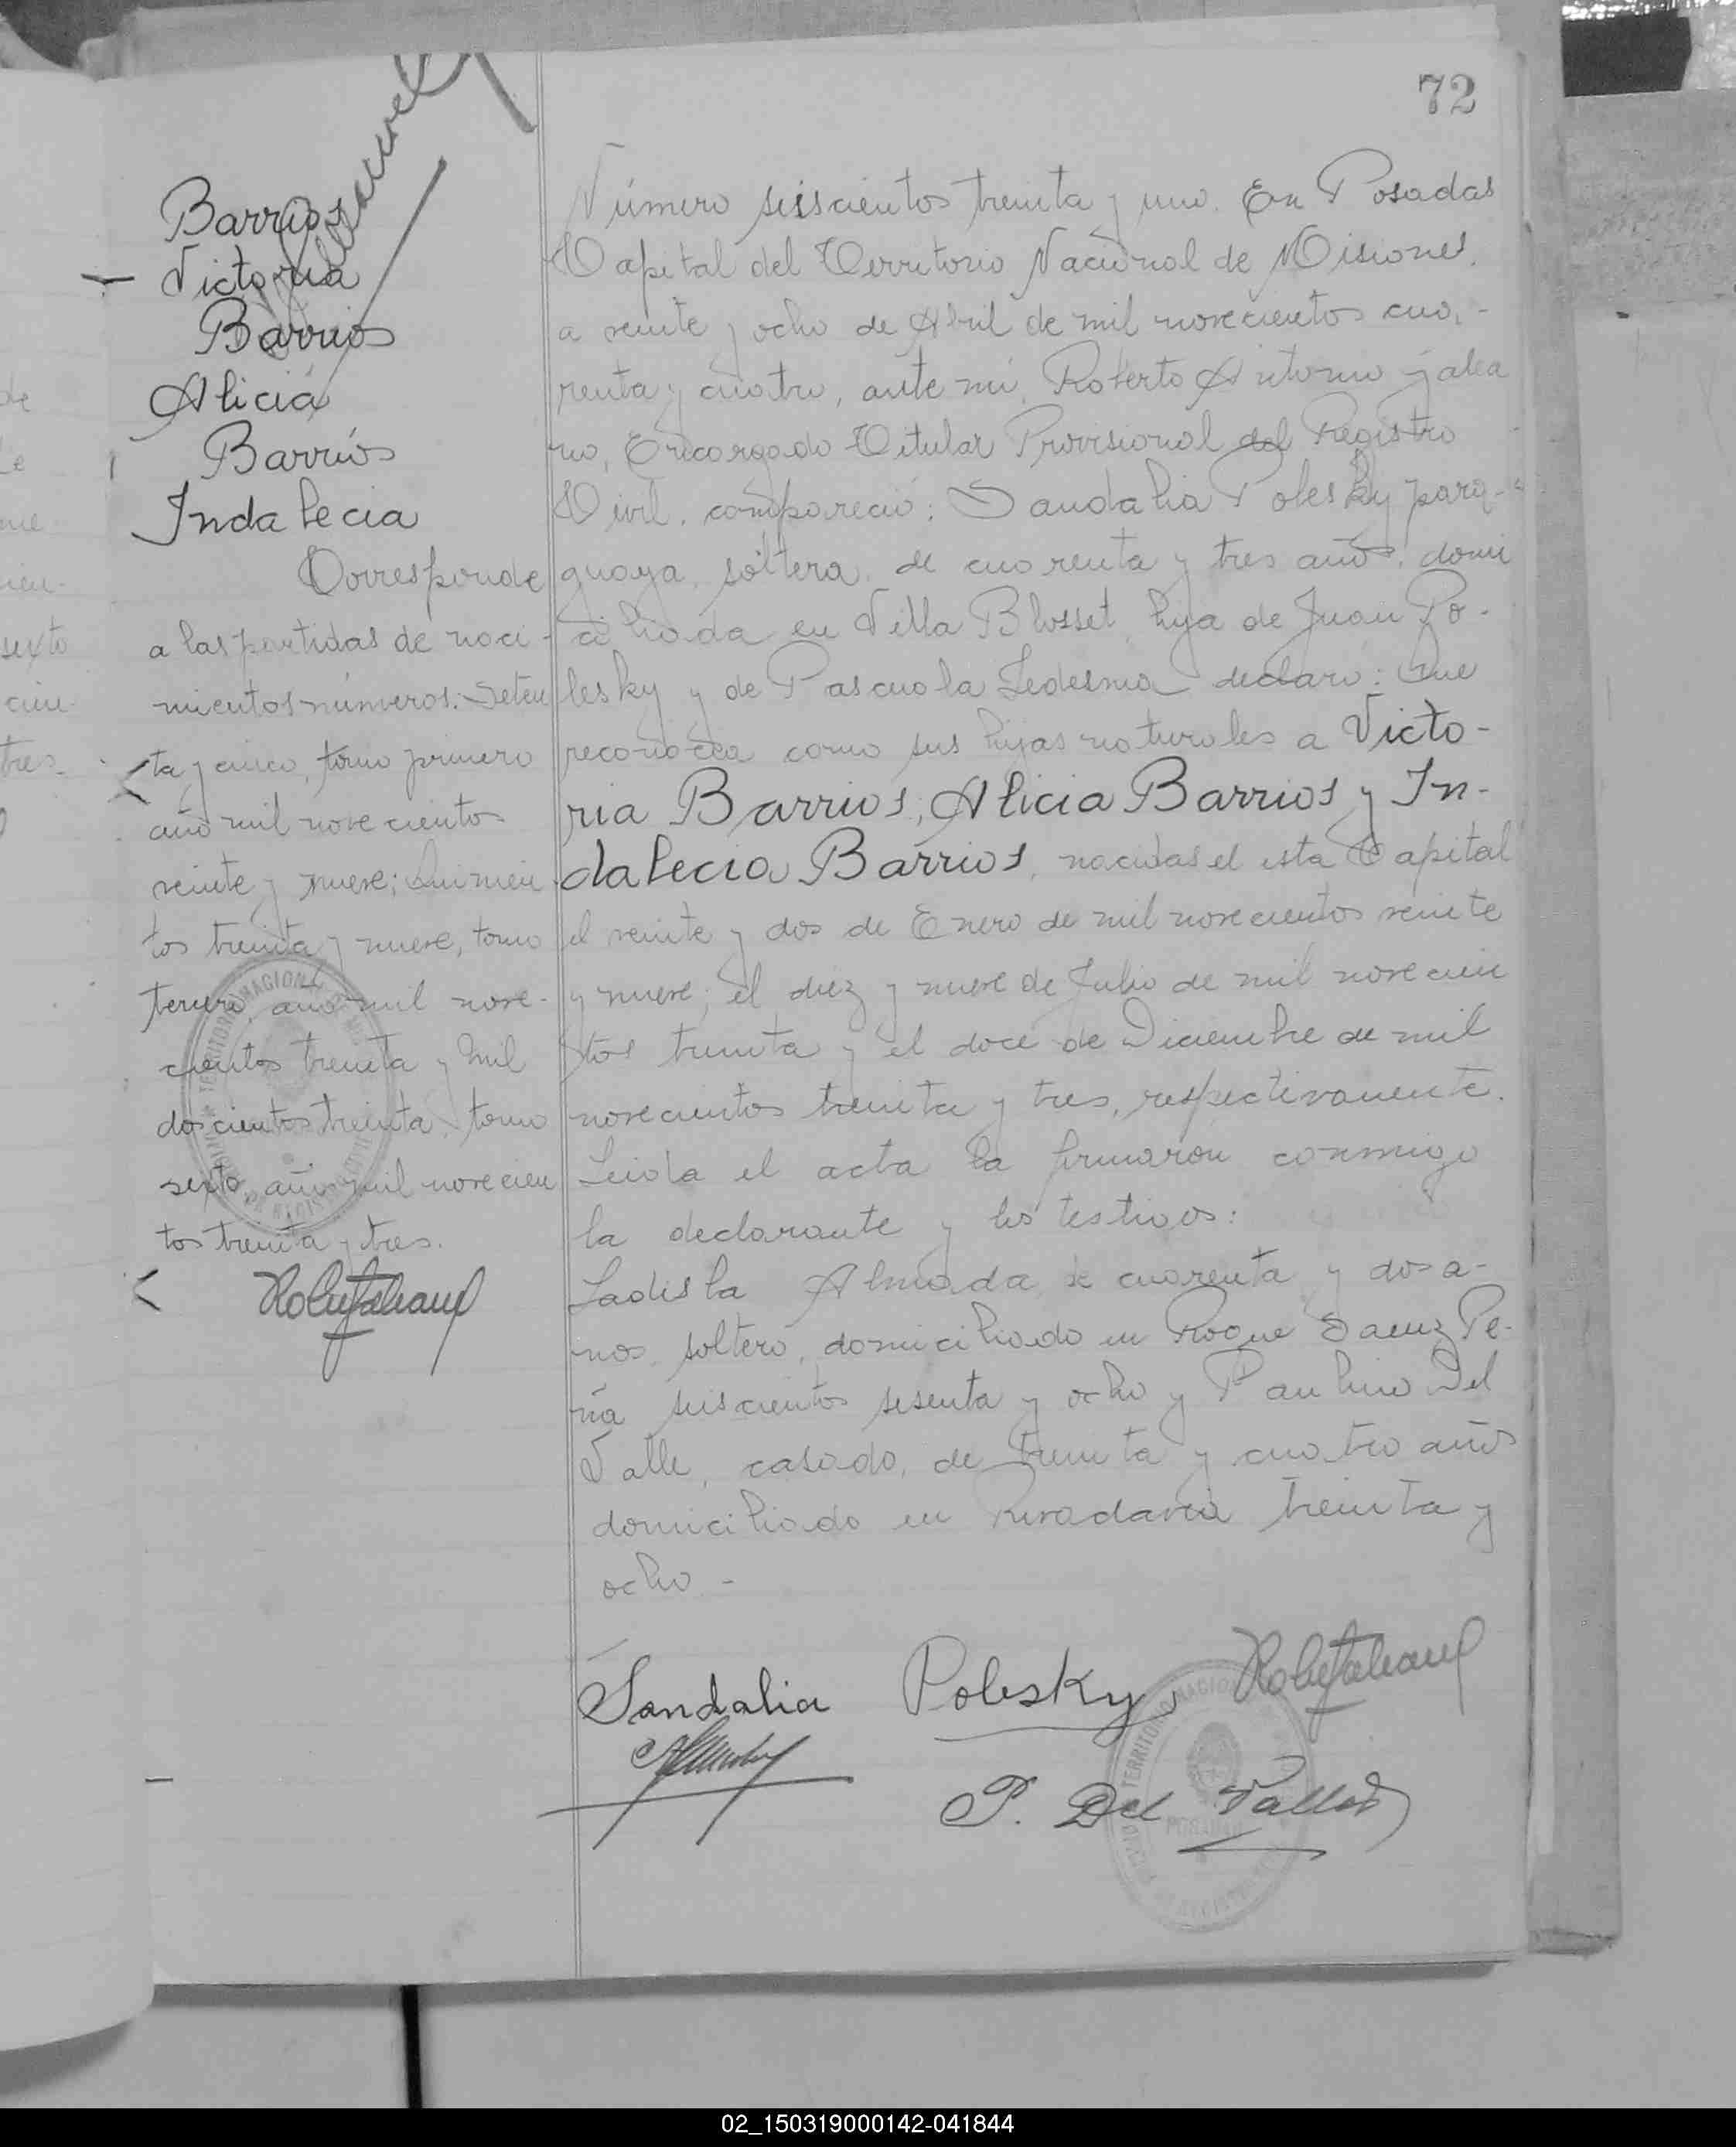 72
Barrios
Victoria
Barrios
Alicia
Barrios
Indalecia
Corresponde
a las partidas de naci-
mientos números: Seten
ta y cinco, tomo primero
año mil novecientos
veinte y nueve; Quinien
tos treinta y nueve, tomo
tercero, año mil nove-
cientos treinta y mil
doscientos treinta tomo
sexto, año mil novecien
tos treinta y tres.
Número seiscientos treinta y uno. En Posadas
Capital del Territorio Nacional de Misiones,
a veinte y ocho de Abril de mil novecientos cua-
renta y cuatro, ante mí, Roberto Antonio Galea
no, Encargado Titular Provisional del Registro
Civil, compareció: Sandalia Polesky para-
guaya, soltera, de cuarenta y tres años, domi
ciliada en Villa Blosset, hija de Juan Po-
lesky y de Pascuala Ledesma declaró: Que
reconocea como sus hijas naturales a Victo-
ria Barrios, Alicia Barrios y In-
dalecia Barrios, nacidas el esta Capital
el veinte y dos de Enero de mil novecientos veinte
y nueve; el diez y nueve de Julio de mil novecien
tos treinta y el doce de Diciembre de mil
novecientos treinta y tres, respectivamente.
Leida el acta la firmaron conmigo
la declarante y los testigos:
Ladisla Almada de cuarenta y dos a-
ños, soltero, domiciliado en Roque Saenz Pe-
ña seiscientos sesenta y ocho y Paulino Del
Valle, casado, de treinta y cuatro años
domiciliado en Rivadavia treinta y
ocho -
Sandalia Polesky
P. Del Valle
TERRITORIO NACIONAL
POSADAS
02_150319000142-041844